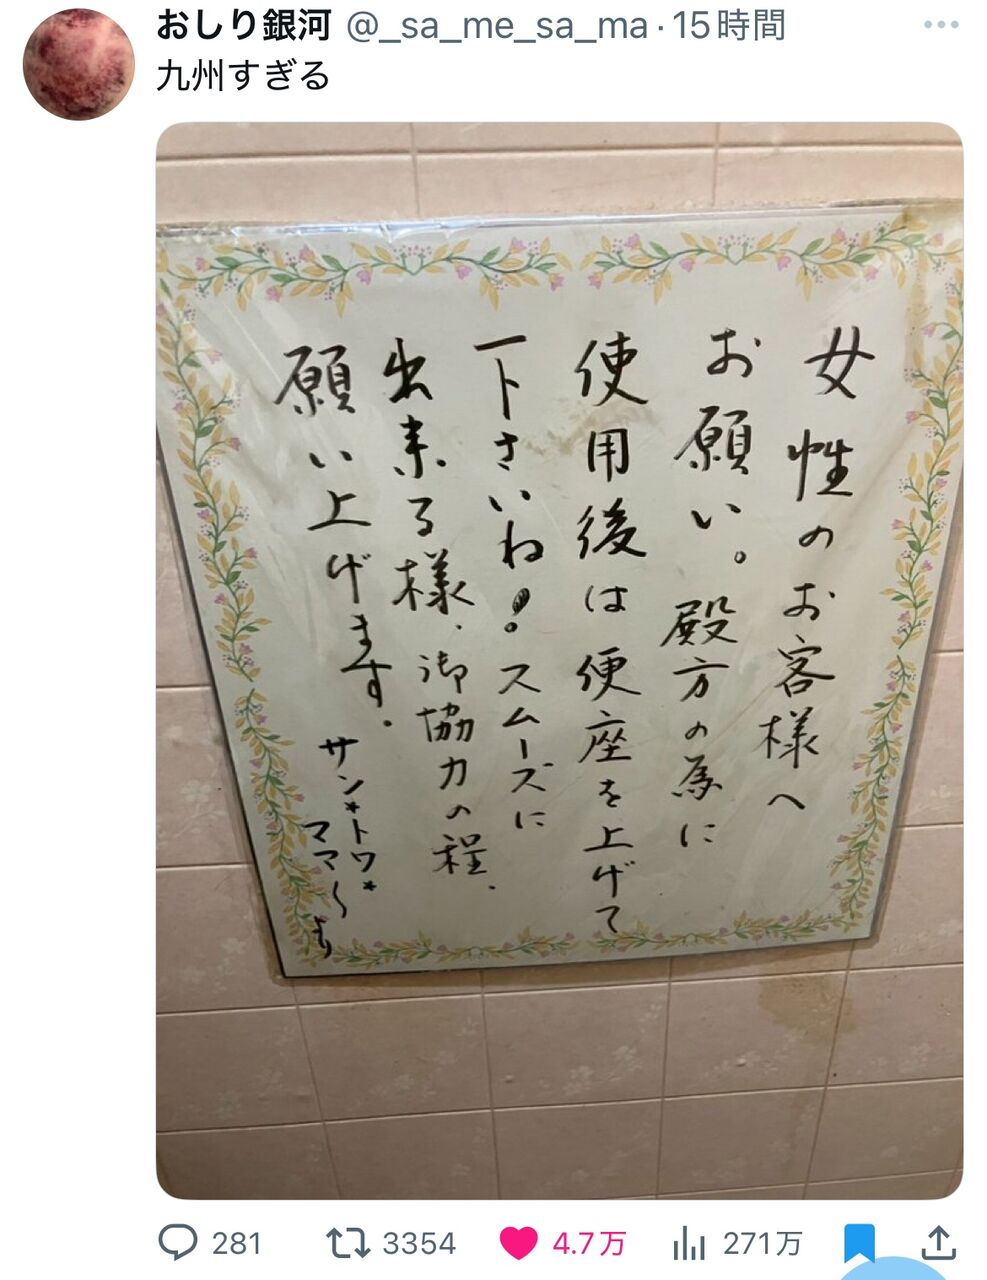 おしり銀河 @_sa_me_sa_ma · 15時間
九州すぎる
女性のお客様へ
お願い。殿方の為に
使用後は便座を上げて
下さいね!スムーズに
出来る様、御協力の程、
願い上げます。
サン*トワ*
ママ〜より
281 3354 4.7万 271万